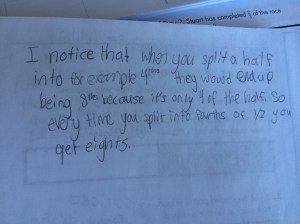 Stuart has completed of the race.
I notice that when you split a half
into for example 4ths they would end up
being 8ths because it's only 4 of the half. So
every time you split into fourths of 1/2 you
get eights.